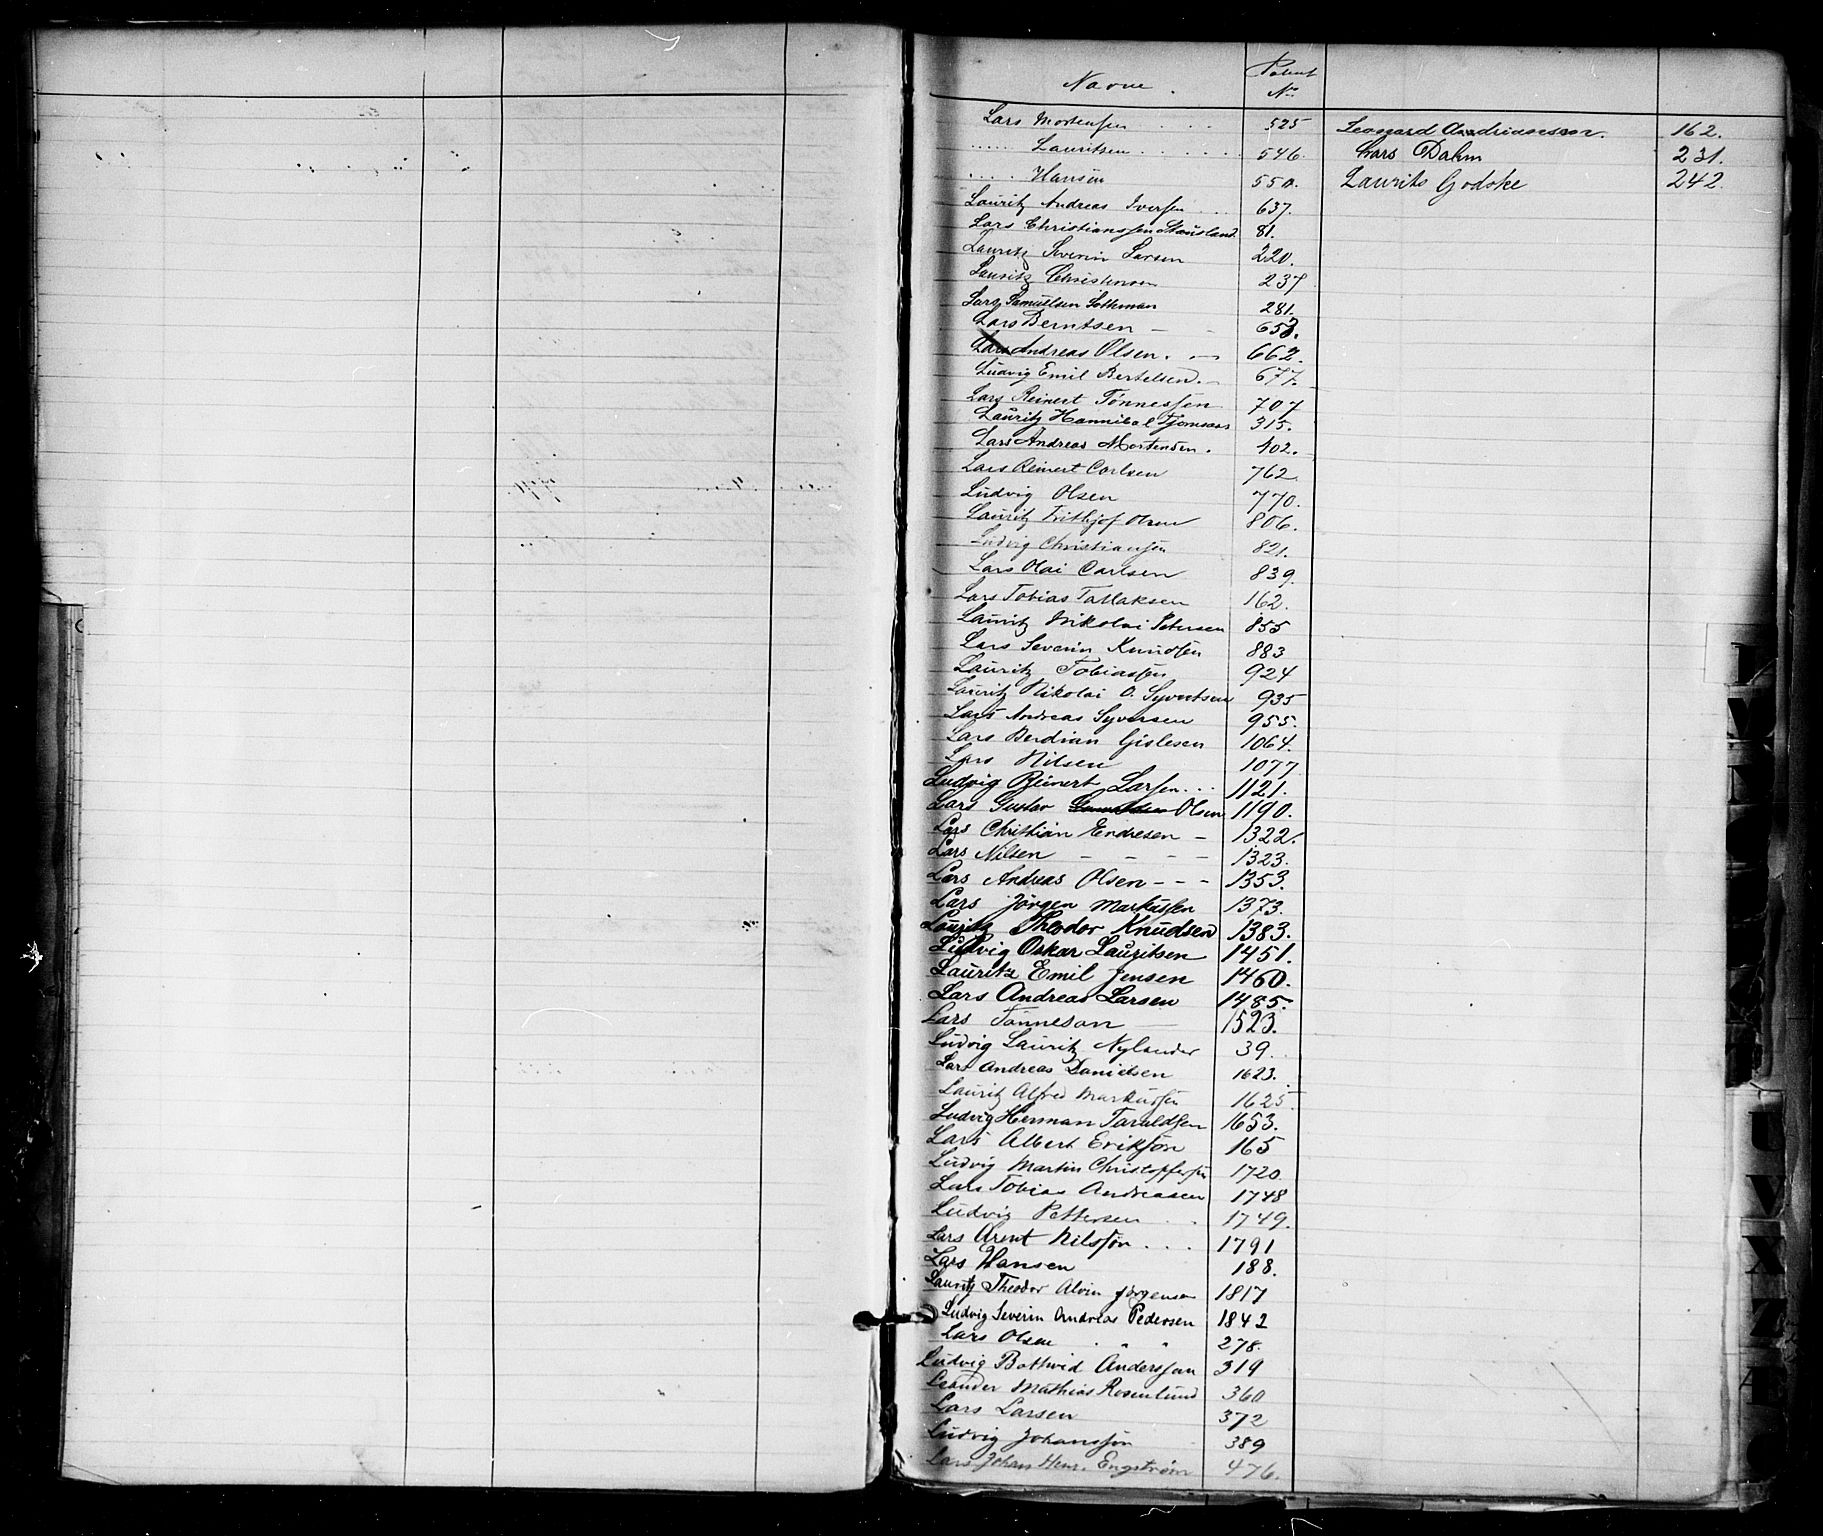 Navne. Patent No
Lars Mortensen . . . . 525
" Lauritsen . . . . . . 546.
" Hansen 550.
Lauritz Andreas Iversen . . . 637.
Lars Christianssen Stausland 81.
Lauritz Severin Larsen 220.
Lauritz Christensen 237
Lars Samuelsen 281.
Lars Berntsen — - 653.
Lars Andreas Olsen. — 662.
Ludvig Emil Bertelsen. — 677.
Lars Reinert Tönnessen 707
Lauritz Hannibal Tjomsaas 315.
Lars Andreas Mortensen. 402.
Lars Reinert Carlsen 762.
Ludvig Olsen 770.
Lauritz Frithjof Olsen 806.
Ludvig Christiansen 821.
Lars Olai Carlsen 839.
Lars Tobias Tallaksen 162.
Lauritz Nikolai Petersen 855
Lars Severin Knudsen 883
Lauritz Tobiassen 924
Lauritz Nikolai O. Syvertsen 935
Lars Andreas Syversen 955.
Lars Berdian Gislesen 1064.
Lars Nilsen 1077
Ludvig Reinert Larsen . . . 1121.
Lars Gustav Olsen 1190.
Lars Christian Endresen — 1322.
Lars Nilsen — — — — 1323.
Lars Andreas Olsen - - - 1353.
Lars Jörgen Markussen 1373.
Lauritz Theodor Knudsen 1383.
Ludvig Oskar Lauritsen 1451.
Lauritz Emil Jensen 1460.
Lars Andreas Larsen 1485.
Lars Tönneson — 1523.
Ludvig Lauritz Nylander 39.
Lars Andreas Danielsen 1623.
Lauritz Alfred Markussen 1625.
Ludvig Herman Taraldsen 1653.
Lars Albert Eriksön 165
Ludvig Martin Christopfersen 1720.
Lars Tobias Andreasen 1748
Ludvig Pettersen . . 1749.
Lars Arent Nilssön . . . 1791
Lars Hansen 188.
Lauritz Theodor Alvin Jörgensen 1817
Ludvig Severin Andreas Pedersen 1842
Lars Olsen . " " 278.
Ludvig Bothvid Anderssön 319
Leander Mathias Rosenlund 360
Lars Larsen 372
Ludvig Johanssön 389
Lars Johan Henr. Engström 476.
Leonard Andriassen. 162.
Lars Dahm 231.
Laurits Godske 242.
U
V
X
Z